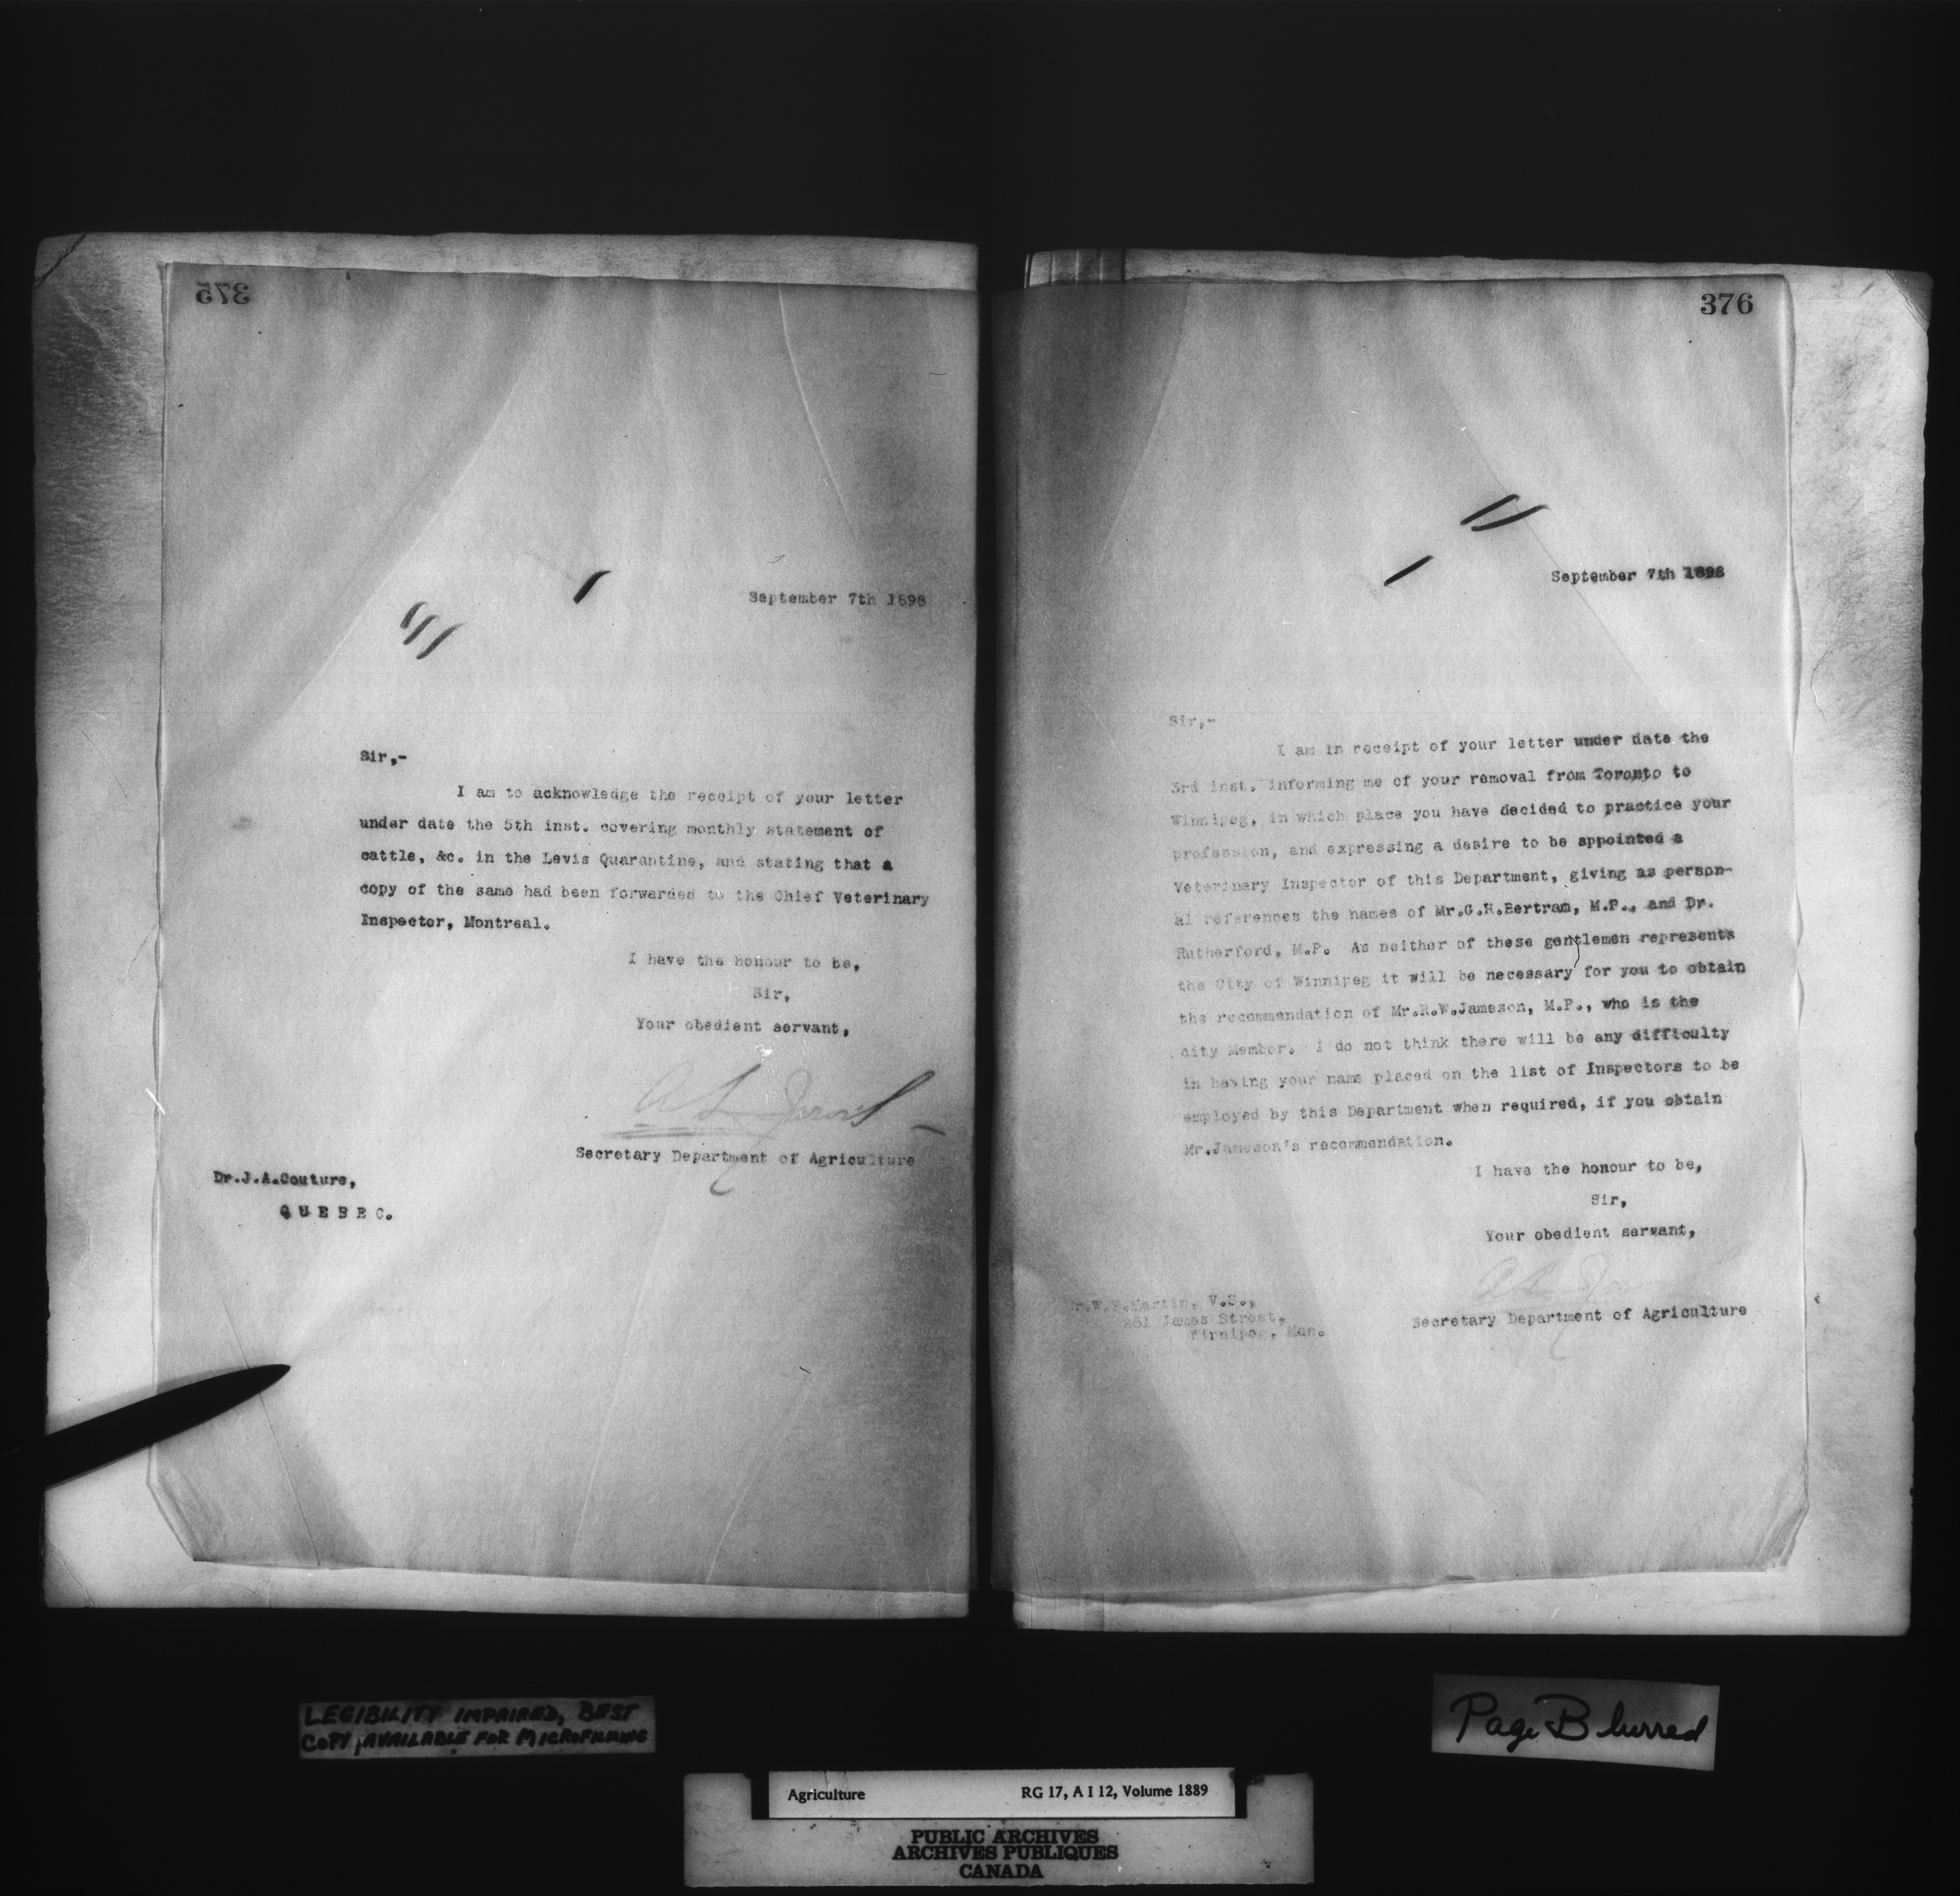 375
September 7th 1898
Sir,-
I am to acknowledge the receipt of your letter
under date the 5th inst. covering monthly statement of
cattle, &c. in the Levis Quarantine, and stating that a
copy of the same had been forwarded to the Chief Veterinary
Inspector, Montreal.
I have the honour to be,
Sir,
Your obedient servant,
Secretary Department of Agriculture
Dr.J.A.Couture,
QUEBEC.
376
September 7th 1898
Sir,-
I am in receipt of your letter under date the
3rd inst. informing me of your removal from Toronto to
Winnipeg, in which place you have decided to practice your
profession, and expressing a desire to be appointed a
Veterinary Inspector of this Department, giving as person-
al references the names of Mr.G.H.Bertram, M.P., and Dr.
Rutherford, M.P. As neither of these gentlemen represents
the City of Winnipeg it will be necessary for you to obtain
the recommendation of Mr.R.W.Jameson, M.P., who is the
city Member. I do not think there will be any difficulty
in having your name placed on the list of Inspectors to be
employed by this Department when required, if you obtain
Mr.Jameson's recommendation.
I have the honour to be,
Sir,
Your obedient servant,
Secretary Department of Agriculture
Martin, V.S.,
James Street,
Winnipeg, Man.
LEGIBILITY IMPAIRED, BEST
COPY AVAILABLE FOR MICROFILMING
Page Blurred
Agriculture RG 17, A I 12, Volume 1889
PUBLIC ARCHIVES
ARCHIVES PUBLIQUES
CANADA